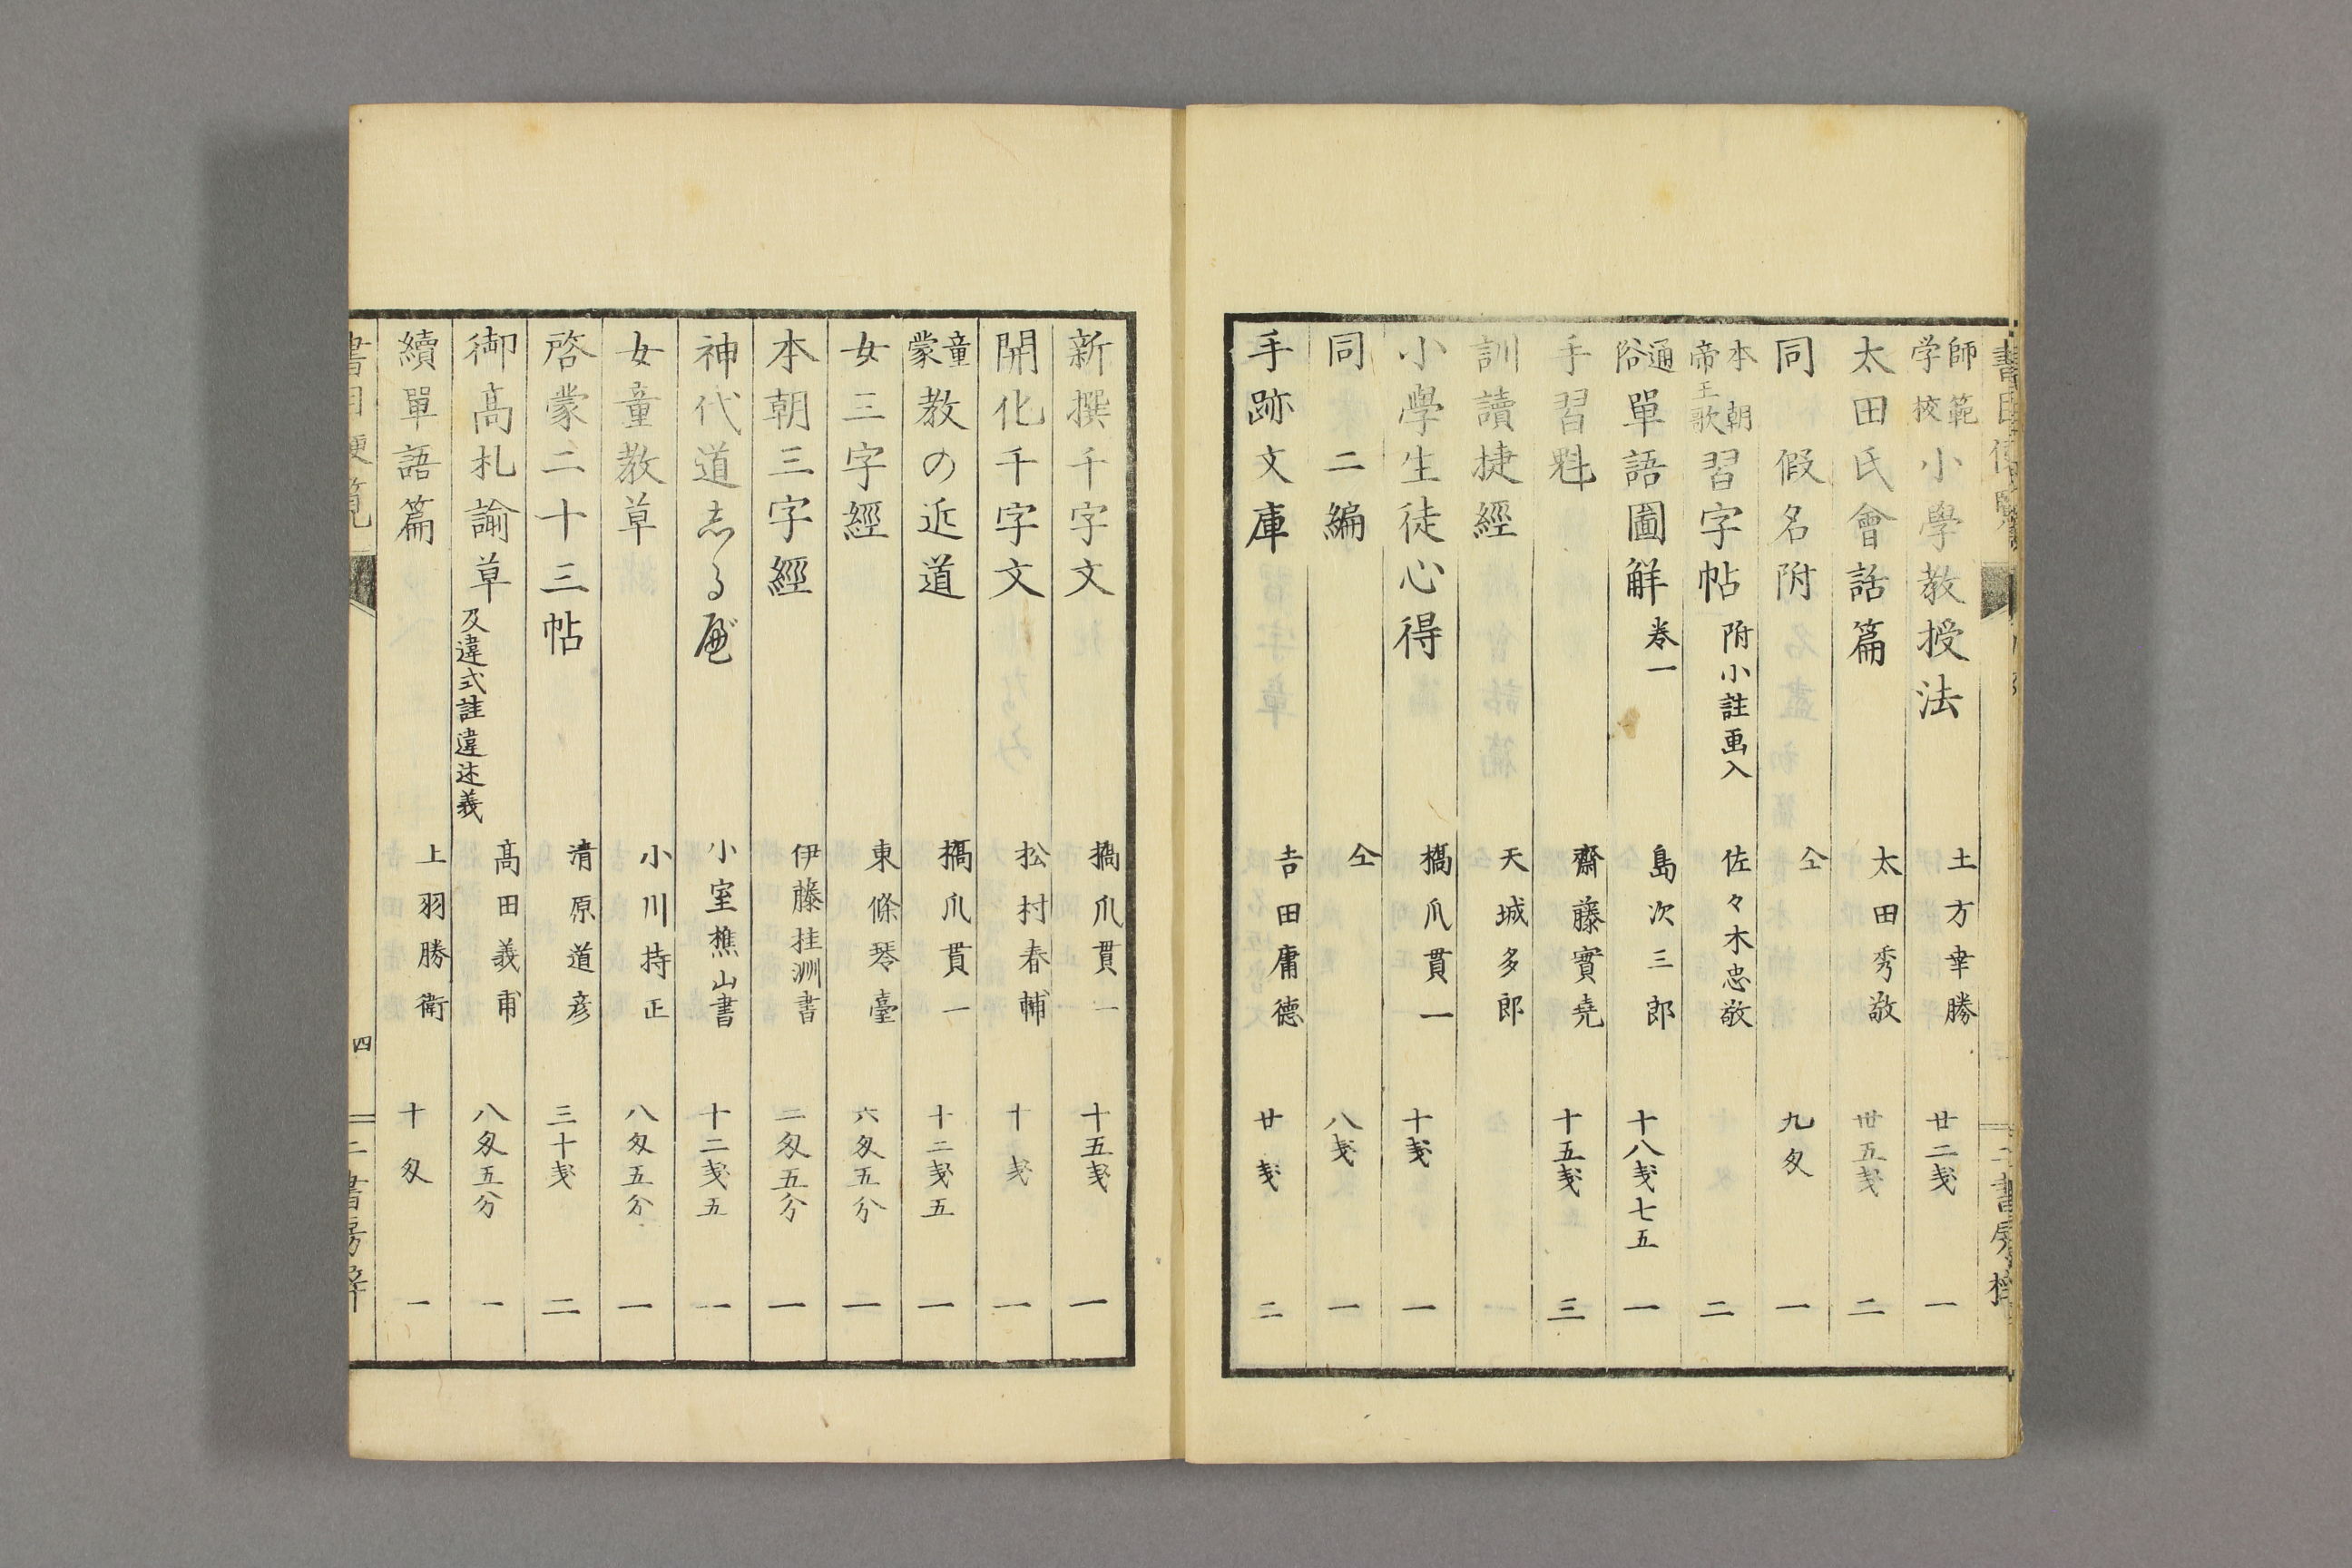 師範学校小學教授法 土方幸勝 廿二戔 一
太田氏會話篇 太田秀敬 丗五戔 二
同 假名附 仝 九匁 一
本朝帝王歌習字帖 附小註画入 佐々木忠敬 二
通俗單語圖解 巻一 島次三郎 十八戔七五 一
手習魁 齋藤實堯 十五戔 三
訓讀捷經 天城多郎
小學生徒心得 橋爪貫一 十戔 一
同二編 仝 八戔 一
手跡文庫 吉田庸德 廿戔 二
新撰千字文 橋爪貫一 十五戔 一
開化千字文 松村春輔 十戔 一
童蒙教の近道 橋爪貫一 十二戔五 一
女三字經 東條琴臺 六匁五分 一
本朝三字經 伊藤桂洲書 二匁五分 一
神代道志る遍 小室樵山書 十二戔五 一
女童教草 小川持正 八匁五分 一
啓蒙二十三帖 清原道彦 三十戔 二
御高札諭草 及違式註違述義 高田義甫 八匁五分 一
續單語篇 上羽勝衛 十匁 一
書目便覧 四 二書房梓